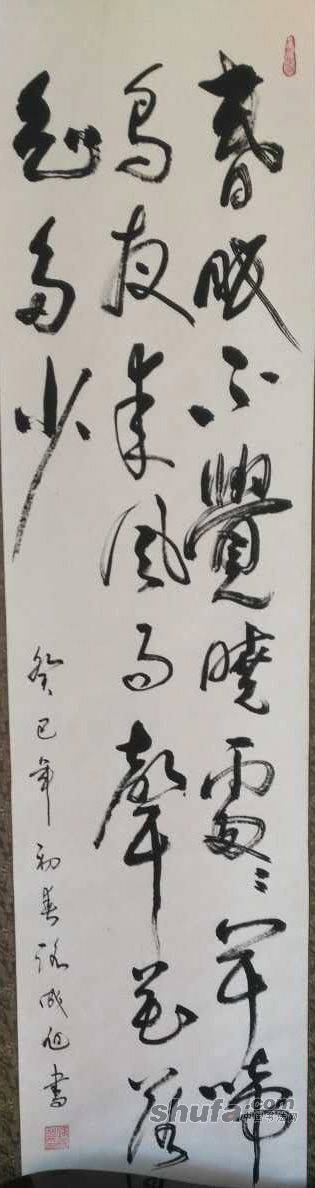 春眠不覺曉處〻聞啼
鳥夜來風雨聲花落
知多少
癸巳年初春 成旭書
shufa.com